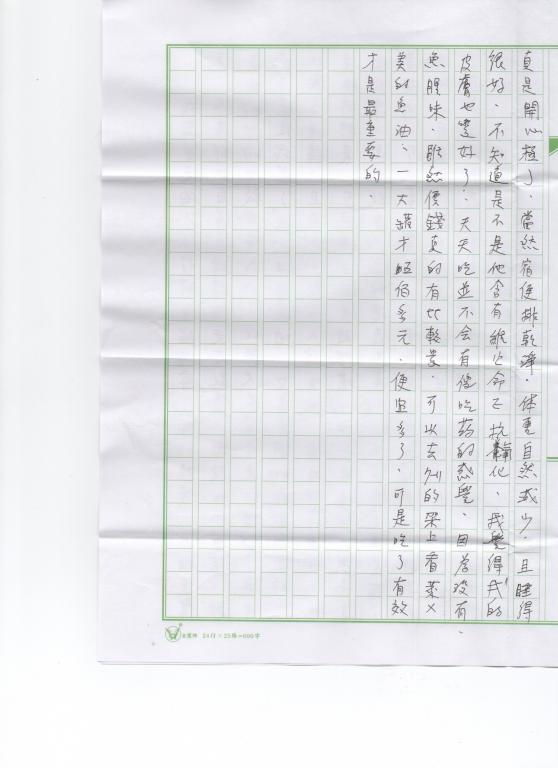 真是開心極了.當然宿便排乾淨.体重自然減少.且睡得
很好.不知道是不是他含有維他命E抗氧化.我覺得我的
皮膚也變好了.天天吃並不会有像吃药的感覺.因為沒有.
魚腥味.雖然價錢真的有比較貴.可以去別的架上看萊X
美的魚油.一大罐才伍佰多元.便宜多了.可是吃了有效
才是最重要的.
24行×25格=600字